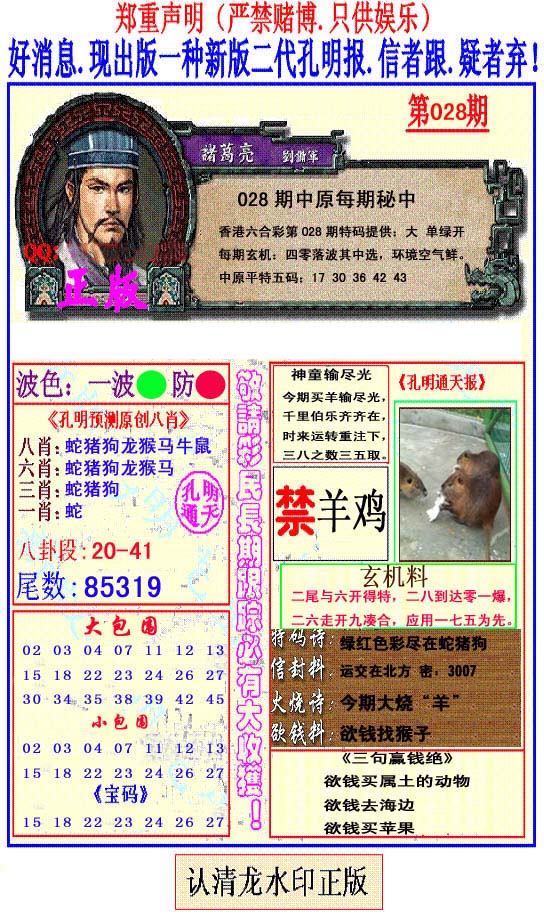 郑重声明（严禁赌博.只供娱乐）
好消息.现出版一种新版二代孔明报.信者跟.疑者弃!
第028期
諸葛亮 劉備軍
028 期中原每期秘中
香港六合彩第 028 期特码提供：大 单绿开
每期玄机：四零落波其中选，环境空气鲜。
中原平特五码：17 30 36 42 43
QQ:
正版
波色：一波 防
《孔明预测原创八肖》
八肖:蛇猪狗龙猴马牛鼠
六肖:蛇猪狗龙猴马
三肖:蛇猪狗
一肖:蛇
孔明通天
八卦段:20-41
尾数:85319
大包围
02 03 04 07 11 12 13
15 18 22 23 24 26 27
30 34 35 38 39 42 45
小包围
02 03 04 07 11 12 13
15 18 22 23 24 26 27
《宝码》
15 18 22 23 24 26 27
敬請彩民長期跟踪必有大收獲！
神童输尽光
今期买羊输尽光，
千里伯乐齐齐在，
时来运转重注下，
三八之数三五取。
《孔明通天报》
禁羊鸡
玄机料
二尾与六开得特，二八到达零一爆，
二六走开九凑合，应用一七五为先。
特码诗:绿红色彩尽在蛇猪狗
信封料.运交在北方 密．3007
火烧诗:今期大烧“羊”
欲钱料:欲钱找猴子
《三句赢钱绝》
欲钱买属土的动物
欲钱去海边
欲钱买苹果
认清龙水印正版